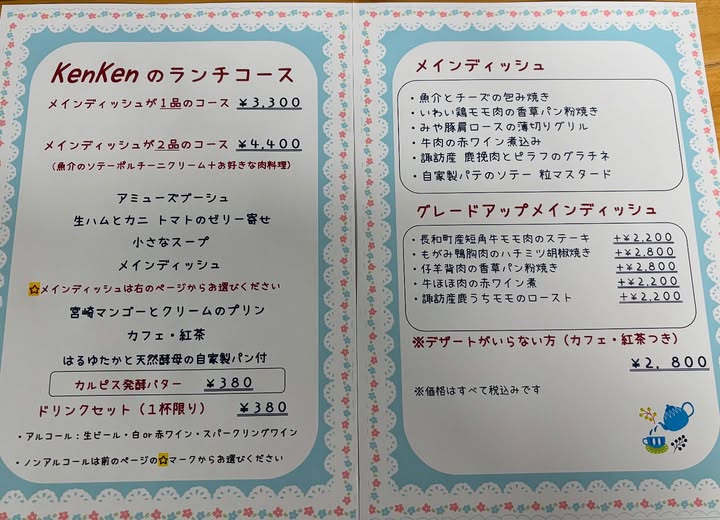 KenKen のランチコース
メインディッシュが1品のコース ¥3,300
メインディッシュが2品のコース ¥4,400
(魚介のソテーポルチーニクリーム+お好きな肉料理)
アミューズブーシュ
生ハムとカニ トマトのゼリー寄せ
小さなスープ
メインディッシュ
☆メインディッシュは右のページからお選びください
宮崎マンゴーとクリームのプリン
カフェ・紅茶
はるゆたかと天然酵母の自家製パン付
カルピス発酵バター ¥380
ドリンクセット(1杯限り) ¥380
・アルコール:生ビール・白or赤ワイン・スパークリングワイン
・ノンアルコールは前のページの☆マークからお選びください
メインディッシュ
・魚介とチーズの包み焼き
・いわい鶏モモ肉の香草パン粉焼き
・みや豚肩ロースの薄切りグリル
・牛肉の赤ワイン煮込み
・諏訪産 鹿挽肉とピラフのグラチネ
・自家製パテのソテー 粒マスタード
グレードアップメインディッシュ
・長和町産短角牛モモ肉のステーキ +¥2,200
・もがみ鴨胸肉のハチミツ胡椒焼き +¥2,800
・仔羊背肉の香草パン粉焼き +¥2,800
・牛ほほ肉の赤ワイン煮 +¥2,200
・諏訪産鹿うちモモのロースト +¥2,200
※デザートがいらない方(カフェ・紅茶つき)
¥2,800
※価格はすべて税込みです